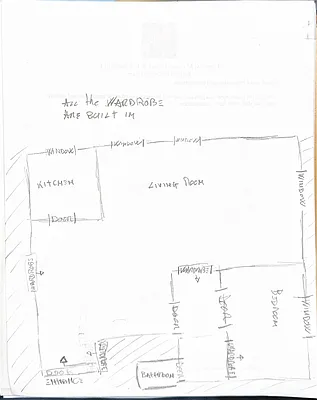 ALL THE WARDROBE
ARE BUILT IN
WINDOW
WINDOW
WINDOW
KITCHEN
LIVING ROOM
WINDOW
DOOR
WARDROBE
WARDROBE
DOOR
DOOR
BEDROOM
WINDOW
WARDROBE
WARDROBE
DOOR
ENTRANCE
BATHROOM
DOOR